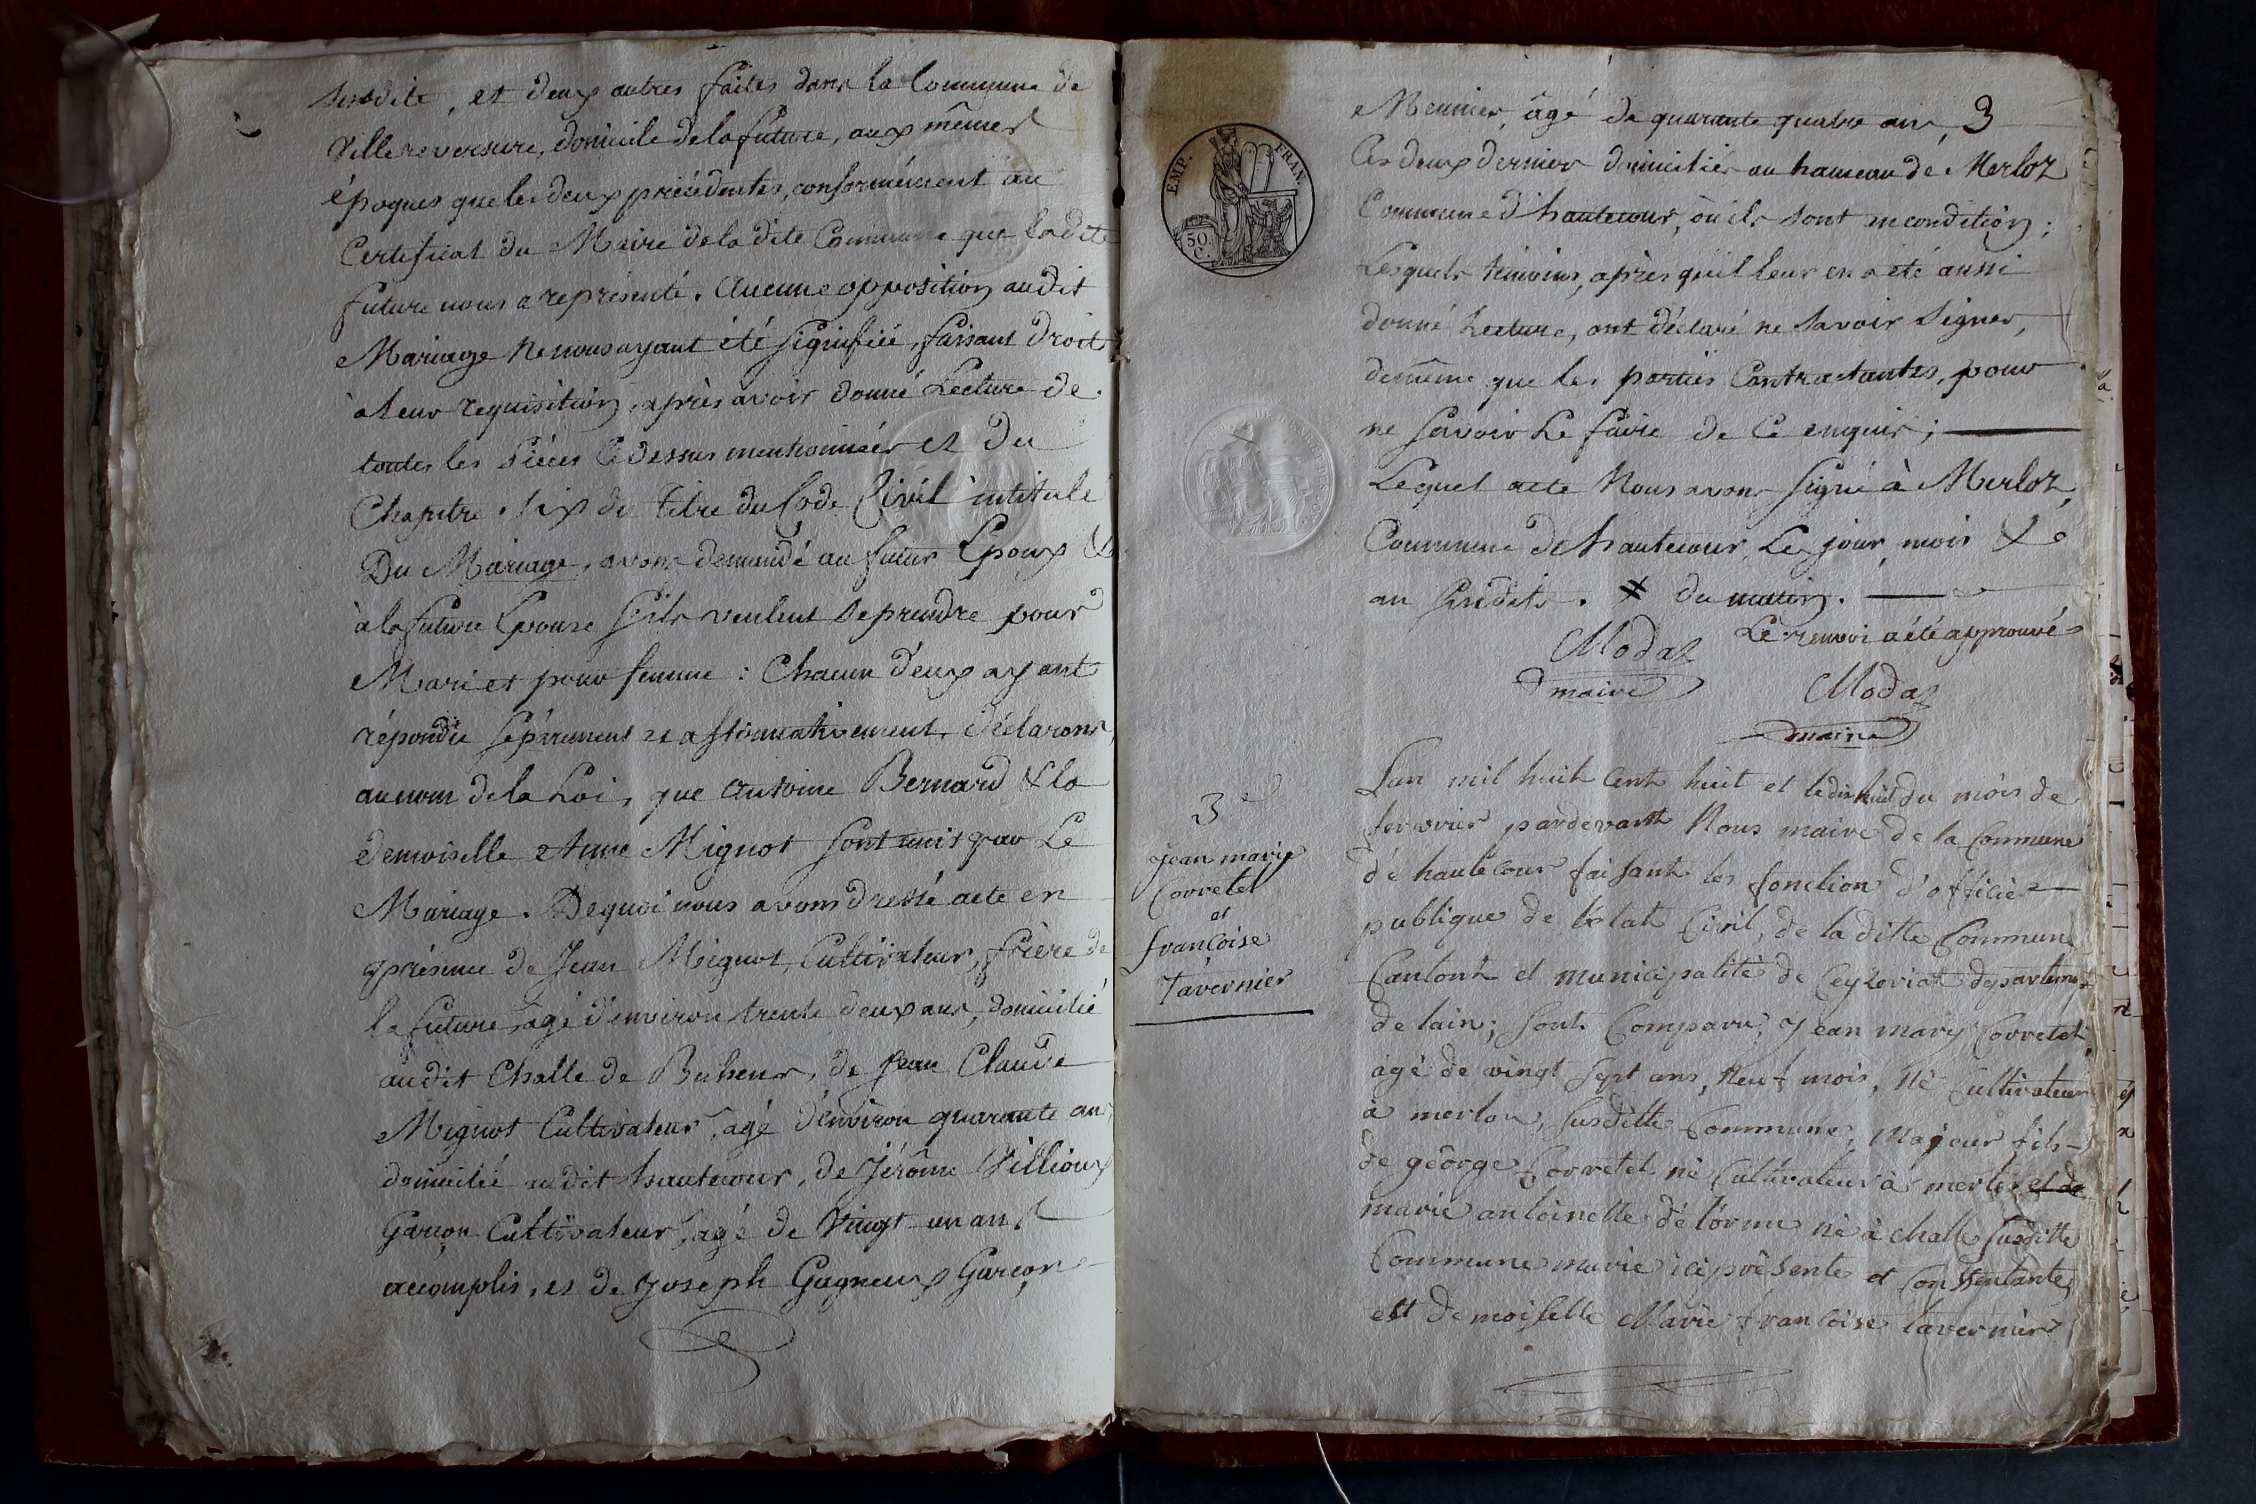 susdite, et deux autres faites dans la Commune de
Villereversure, domicile de la future, aux mêmes
époques que les deux précédentes, conformément au
Certificat du Maire de la dite Commune que la dite
future nous a représenté. Aucune opposition audit
Mariage ne nous ayant été signifiée, faisant droit
à leur requisition, après avoir donné Lecture de
toutes les pièces cidessus mentionnées et du
Chapitre six du titre du Code Civil intitulé
Du Mariage, avons demandé au futur Epoux &
à la future Epouse s'ils veulent se prendre pour
Mari et pour femme : Chacun d'eux ayant
répondu séparement et affirmativement, déclarons,
au nom de la Loi, que Antoine Bernard & la
demoiselle Anne Mignot sont unis par Le
Mariage. De quoi nous avons dressé acte en
présence de Jean Mignot, Cultivateur, frère de
la future, agé d'environ trente deux ans, domicilié
audit Challe de Buheur, de Jean Claude
Mignot Cultivateur, agé d'environ quarante ans
domicilié audit hautecour, de Jérôme Villioux
Garçon Cultivateur, agé de vingt-un ans
accomplis, et de Joseph Gagneux Garçon
EMP. FRAN.
50.
C.
Meunier, âgé de quarante quatre ans, 3
Ces deux derniers domiciliés au hameau de Merloz
Commune d'hautecour, où ils sont en condition ;
Lesquels témoins, après qu'il leur en a été aussi
donné Lecture, ont déclaré ne savoir signer,
demême que les parties Contractantes, pour
ne savoir le faire de ce enquis ;
Lequel acte Nous avons signé à Merloz,
Commune de hautecour, Les jour, mois &
an susdits. # du matin.
Le renvoi a été approuvé
Modaz
maire
Modaz
maire
3e
jean marie
Corretel
et
françoise
Tavernier
L'an mil huit Cent huit et le dix huit du mois de
fervrier pardevant Nous maire de la Commune
d'é hautecour faisant les fonction d'officier
publique de l'etat Civil, de la ditte Commune
Cantont et municipalité de Ceyzeriat departemt
de lain ; sont Comparu, Jean mary Corretel
agé de vingt sept ans, neuf mois, né Cultivateur
à merlor, susditte Commune, Majeur fils
de géorge Corretel né Cultivateur à merlor et de
marie antoinette délorme né à challe susditte
Commune marie ici présente et Consentante
ett demoiselle Marie francoise tavernier